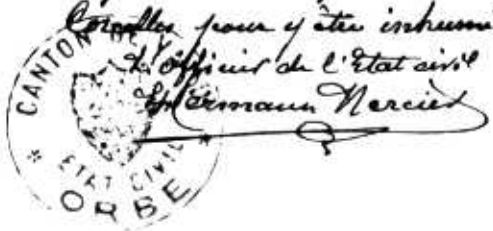 Corcelles pour y être inhumé
L'officier de l'Etat civil
Hermann Mercier
CANTON DE
ETAT CIVIL
ORBE